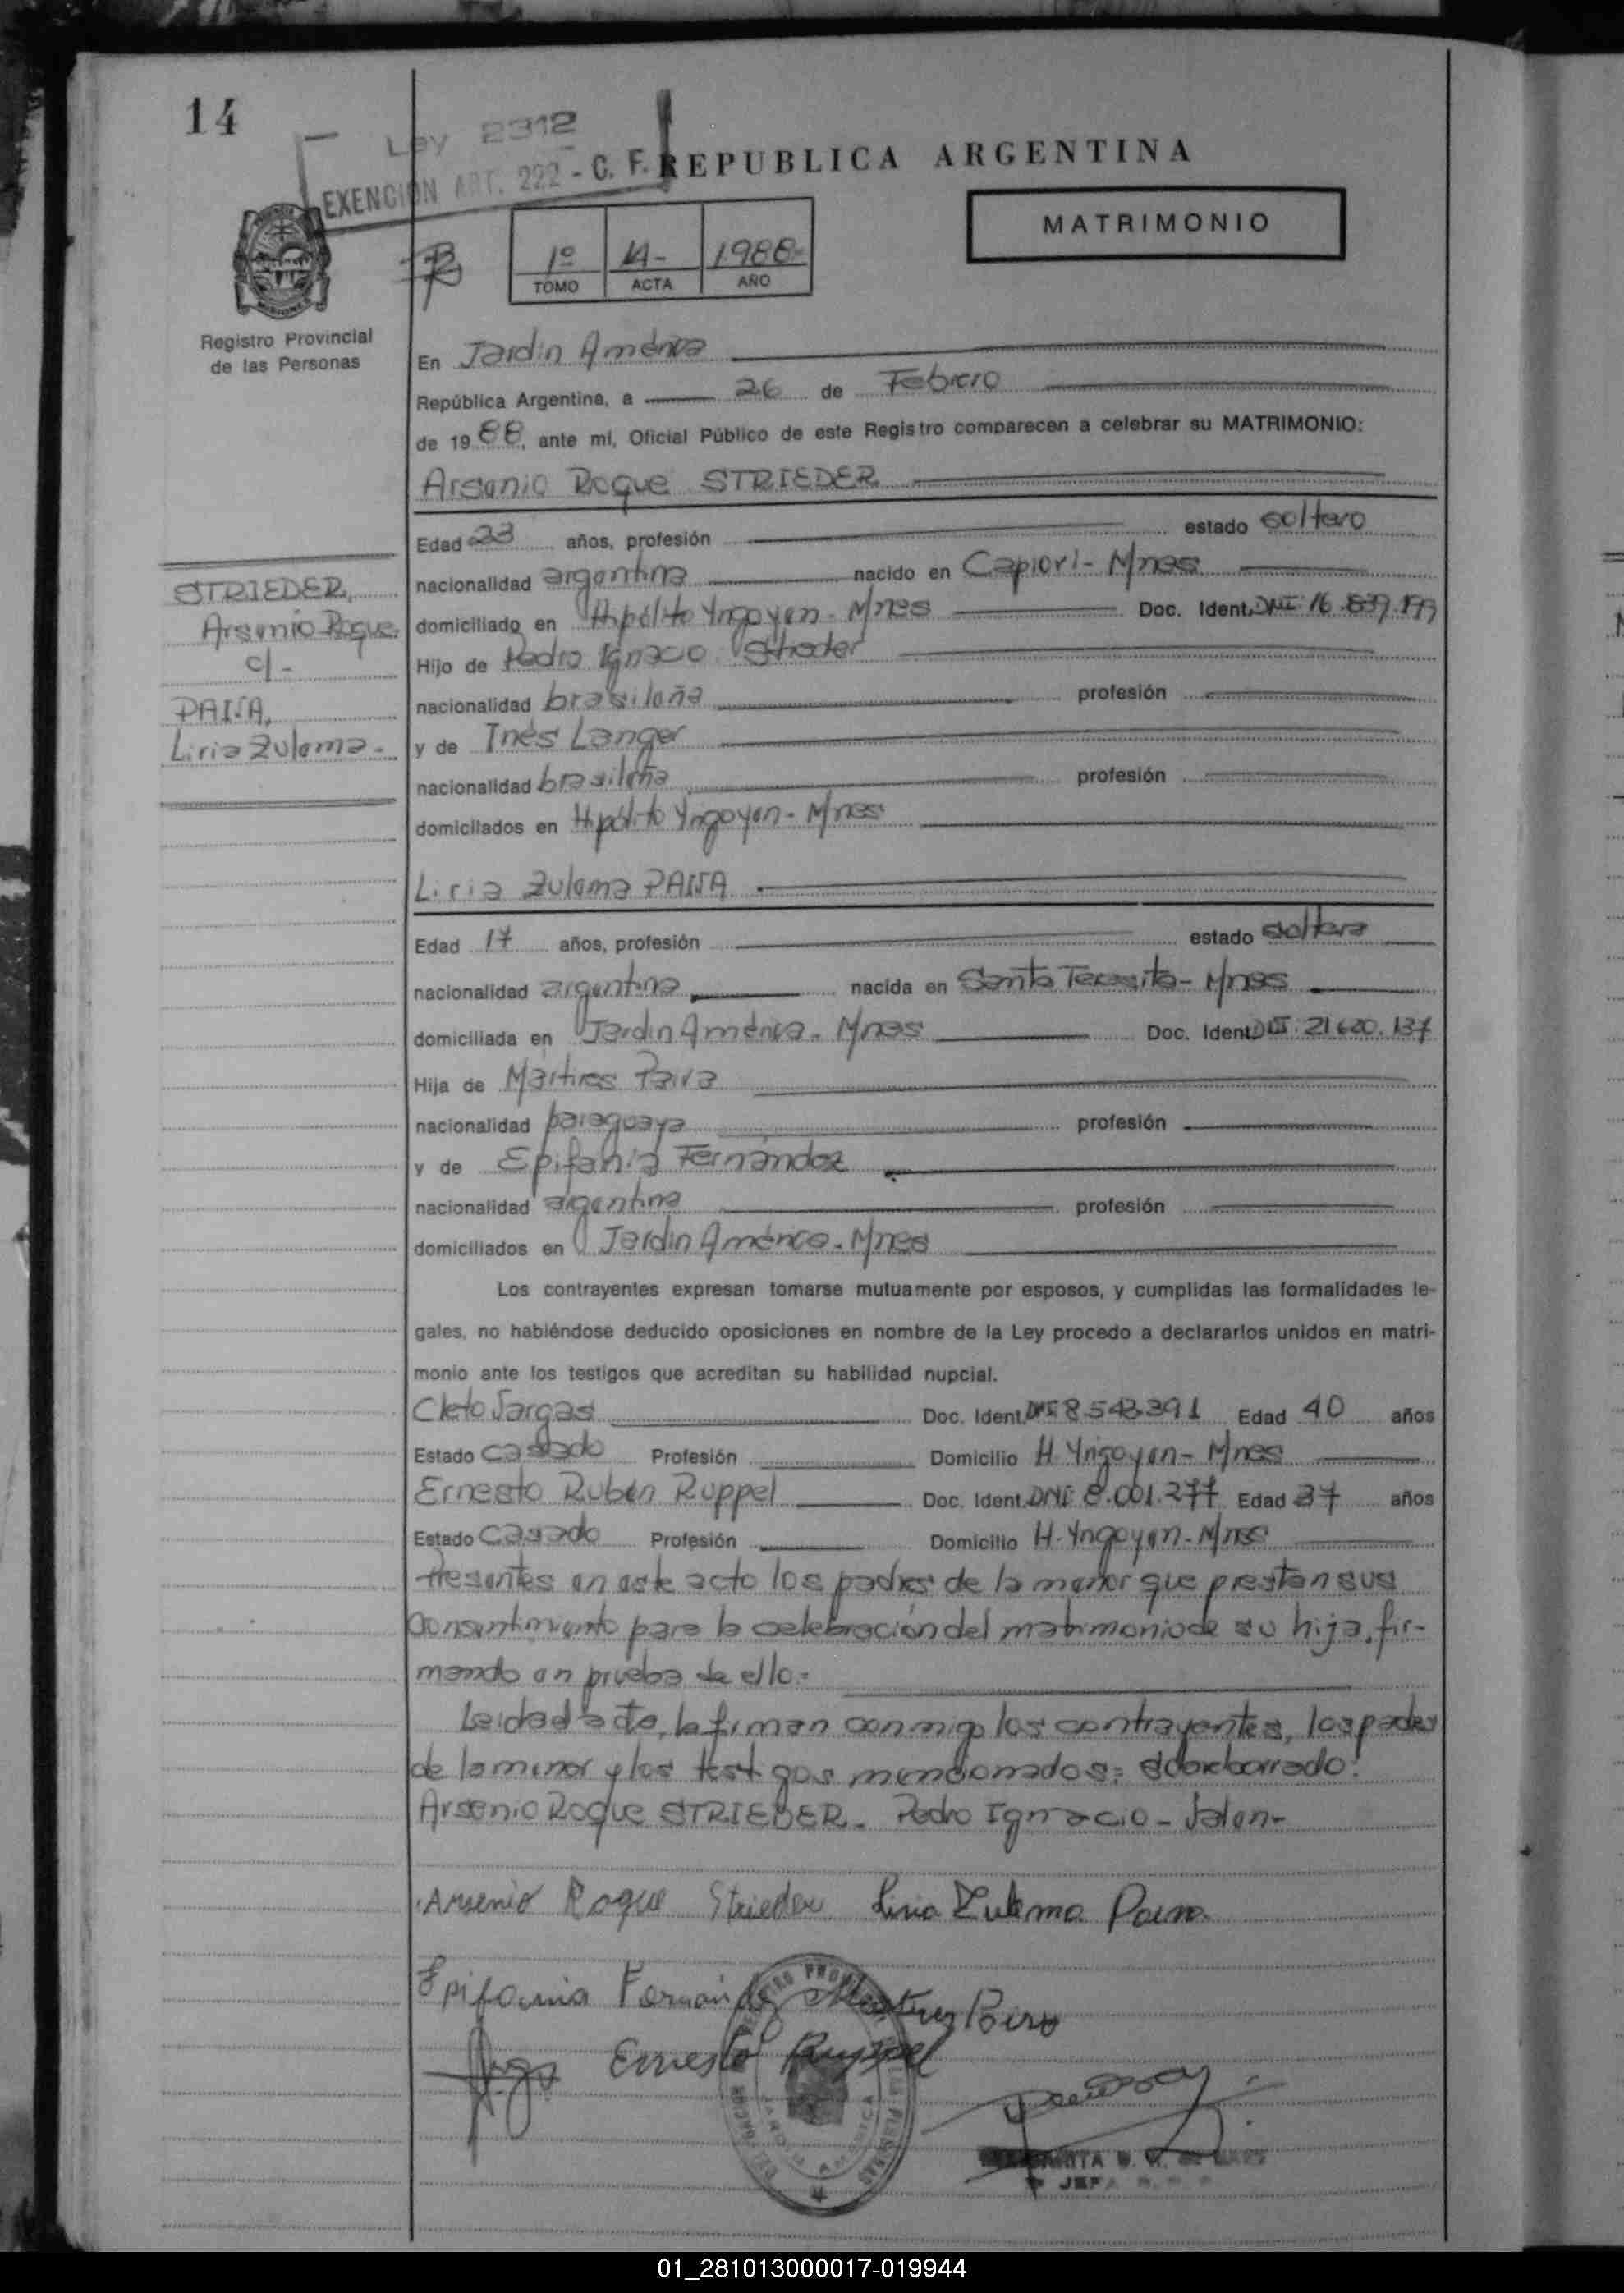 14
Ley 2312
EXENCION ART. 222 - C. F.
REPUBLICA ARGENTINA
MATRIMONIO
1º 14- 1988-
TOMO ACTA AÑO
Registro Provincial
de las Personas
En Jardín América
República Argentina, a 26 de Febrero
de 1988, ante mí, Oficial Público de este Registro comparecen a celebrar su MATRIMONIO:
Arsenio Roque STRIEDER
Edad 23 años, profesión estado soltero
nacionalidad argentina nacido en Capioví- Mnes
domiciliado en Hipólito Yrigoyen- Mnes Doc. Ident. DNI 16.839.199
Hijo de Pedro Ignacio Strieder
nacionalidad brasileña profesión
y de Inés Langer
nacionalidad brasileña profesión
domiciliados en Hipólito Yrigoyen- Mnes
STRIEDER,
Arsenio Roque
c/-
PAIVA,
Liria Zulema-
Liria Zulema PAIVA
Edad 17 años, profesión estado soltera
nacionalidad argentina nacida en Santa Teresita- Mnes
domiciliada en Jardín América- Mnes Doc. Ident. DNI: 21.620.137
Hija de Mártires Paiva
nacionalidad paraguaya profesión
y de Epifania Fernández
nacionalidad argentina profesión
domiciliados en Jardín América- Mnes
Los contrayentes expresan tomarse mutuamente por esposos, y cumplidas las formalidades le-
gales, no habiéndose deducido oposiciones en nombre de la Ley procedo a declararlos unidos en matri-
monio ante los testigos que acreditan su habilidad nupcial.
Cleto Vargas Doc. Ident. DNI 8.543.391 Edad 40 años
Estado casado Profesión Domicilio H. Yrigoyen- Mnes
Ernesto Rubén Ruppel Doc. Ident. DNI 8.001.277 Edad 37 años
Estado casado Profesión Domicilio H. Yrigoyen- Mnes
Presentes en este acto los padres de la menor que prestan sus
consentimiento para la celebración del matrimonio de su hija, fir-
mando en prueba de ello.-
Leida el acta, la firman conmigo los contrayentes, los padres
de la menor y los testigos mencionados: sobreborrado:
Arsenio Roque STRIEDER- Pedro Ignacio- Valen-
Arsenio Roque Strieder Liria Zulema Paiva
Epifania Fernández Martires Paiva
Ernesto Ruppel
JEFA
01_281013000017-019944